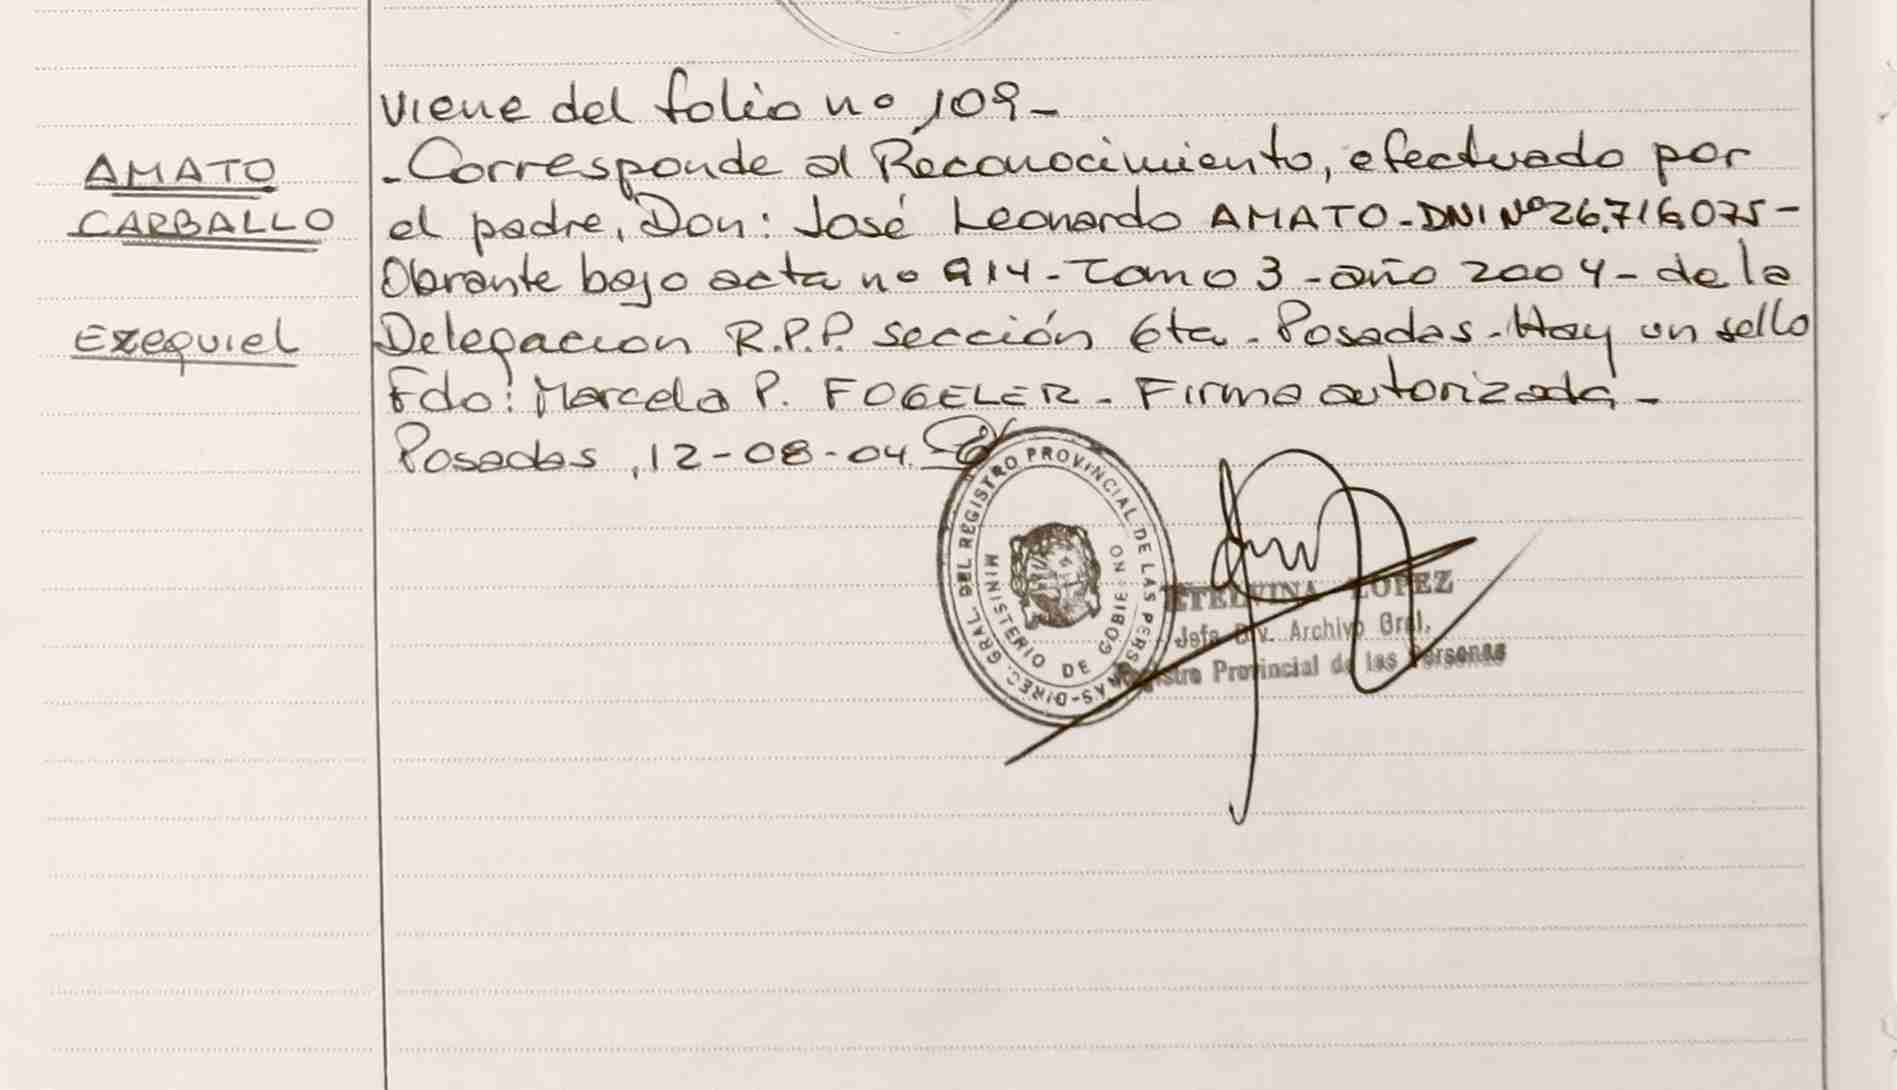 viene del folio no 109-
AMATO
CARBALLO
Ezequiel
-Corresponde al Reconocimiento, efectuado por
el padre, Don: José Leonardo AMATO-DNI Nº26.716.075-
Obrante bajo acta no 914-Tomo 3-año 2004-de la
Delegacion R.P.P. sección 6ta-Posadas-Hay un sello
Fdo: Marcela P. FOGELER-Firma autorizada-
Posadas, 12-08-04.
DIREC. GRAL. DEL REGISTRO PROVINCIAL DE LAS PERSONAS-
MINISTERIO DE GOBIERNO
ETELVINA LOPEZ
Jefa Div. Archivo Gral.
Registro Provincial de las Personas